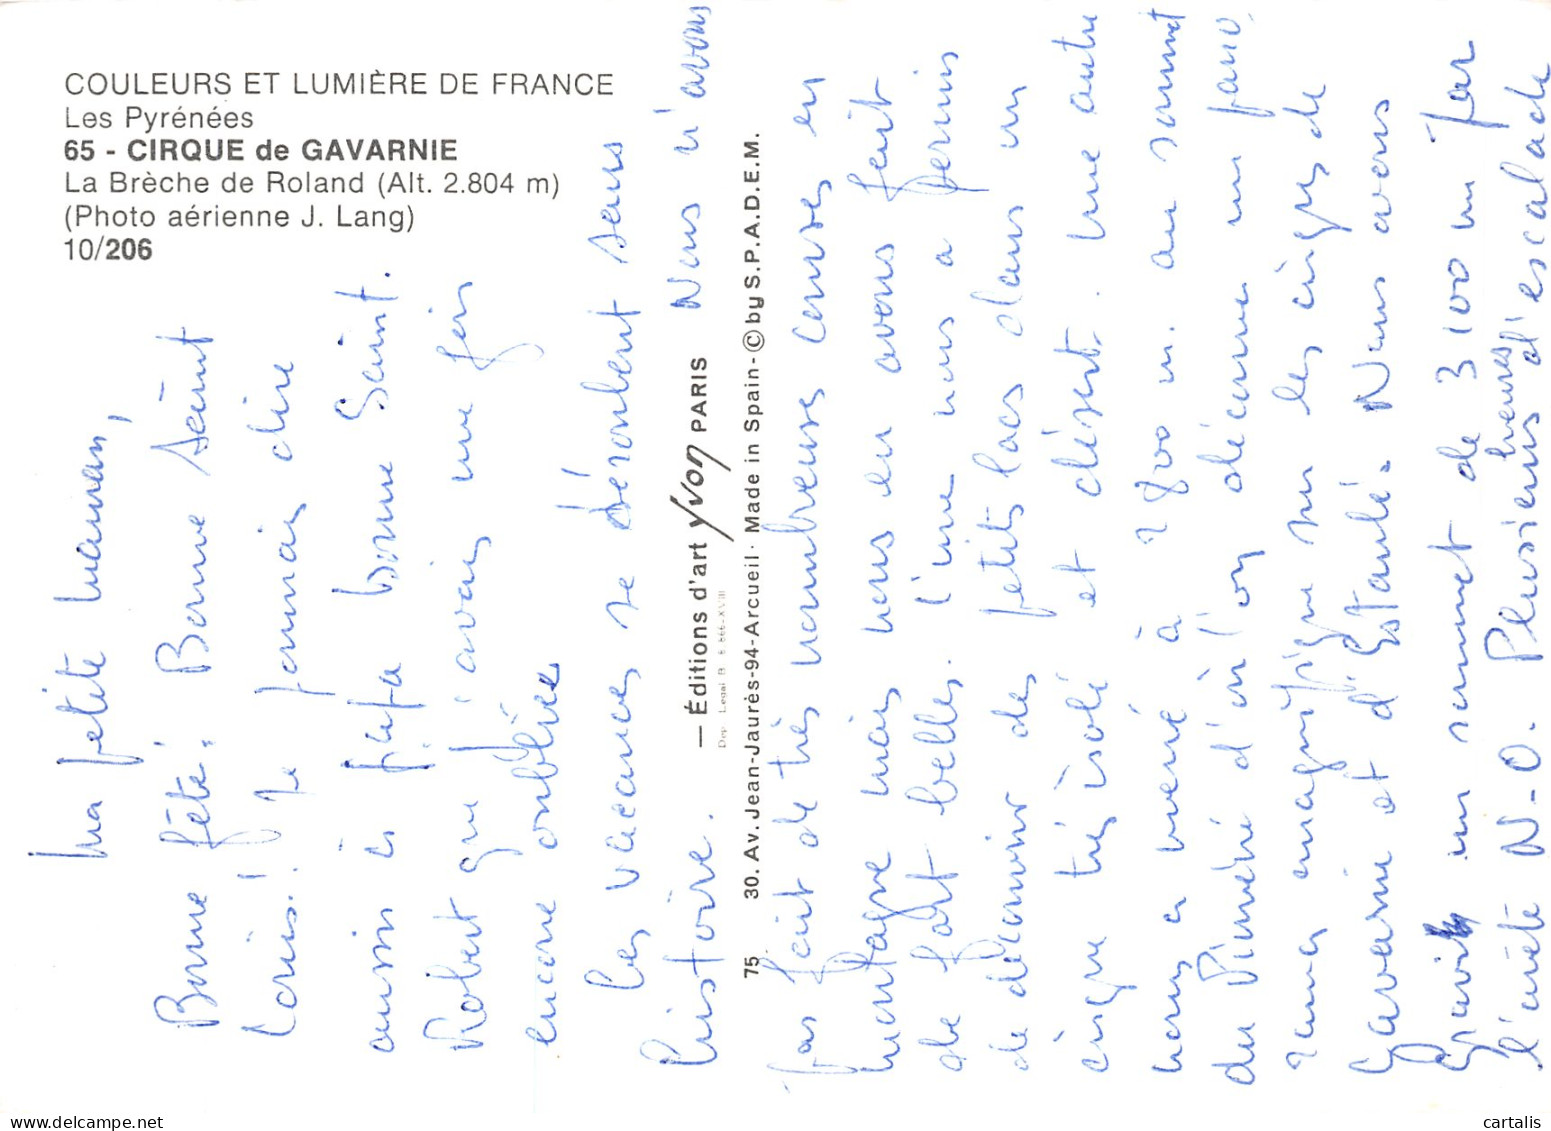 COULEURS ET LUMIÈRE DE FRANCE
Les Pyrénées
65 - CIRQUE de GAVARNIE
La Brèche de Roland (Alt. 2.804 m)
(Photo aérienne J. Lang)
10/206
Ma petite maman,
Bonne fête! Bonne saint
Louis! Je pensais dire
aussi à papa bonne Saint.
Robert que j'avais une fois
encore oubliée
Les vacances se déroulent sans
histoire. Nous n'avons
— Éditions d'art yvon PARIS
Dep. Legal B.
75 30. Av. Jean-Jaurès-94-Arcueil · Made in Spain - © by S.P.A.D.E.M.
pas fait de très nombreuses courses en
montagne mais nous en avons fait
de fort belles. l'une nous a permis
de découvrir des petits lacs dans un
cirque très isolé et désert. une autre
nous a mené à 2800 m. au sommet
du Piméné d'où l'on découvre un pano-
rama magnifique sur les cirques de
Gavarnie et d'Estaubé. Nous avons
gravi un sommet de 3100 m par
l'arête N-O. Plusieurs heures d'escalade
cartalis